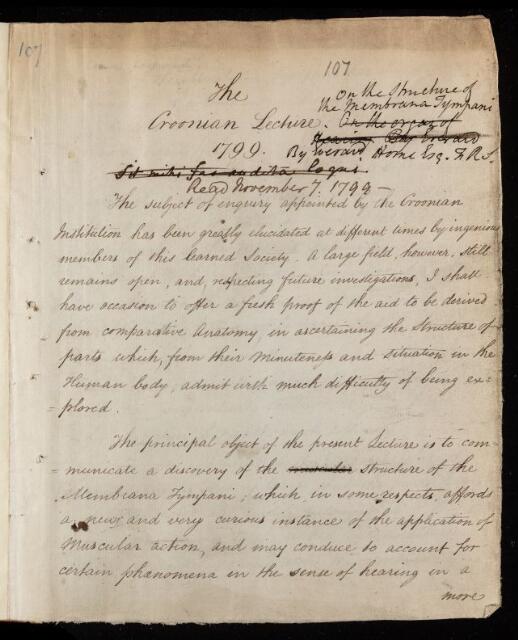 107
107
The
On the Structure of
the Membrana Tympani
Croonian Lecture. On the organ of
Hearing By Everard
1799. By Everard Home Esq. F.R.S.
Sit mihi fas audita loqui.
Read November 7. 1799 —
The subject of enquiry appointed by the Croonian
Institution has been greatly elucidated at different times by ingenious
members of this learned Society. A large field, however, still
remains open, and, respecting future investigations, I shall
have occasion to offer a fresh proof of the aid to be derived
from comparative Anatomy, in ascertaining the Structure of
parts which, from their Minuteness and situation in the
Human body, admit with much difficulty of being ex=
=plored.
The principal object of the present Lecture is to com=
=municate a discovery of the muscular structure of the
Membrana Tympani; which, in some respects, affords
a new and very curious instance of the application of
Muscular action, and may conduce to account for
certain phænomena in the sense of hearing in a
more